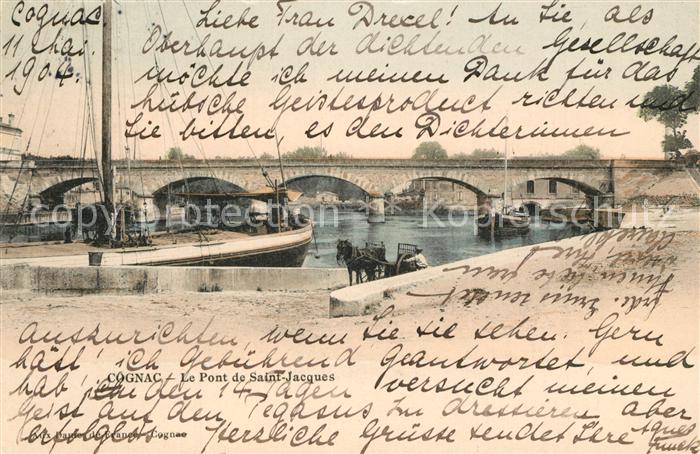 Cognac
11 Mai.
1904.
Liebe Frau Drexel! An Sie, als
Oberhaupt der dichtenden Gesellschaft
möchte ich meinen Dank für das
hübsche Geistesproduct richten und
Sie bitten, es den Dichterinnen
Copyright protection
auszurichten, wenn Sie sie sehen. Gern
hätt' ich gebührend geantwortet, und
hab' in den 14 Tagen versucht meinen
COGNAC - Le Pont de Saint-Jacques
Geist auf den Pegasus zu dressieren aber
erfolglos. Herzliche Grüsse sendet Ihre Agnes
Aux Dames de France - Cognac